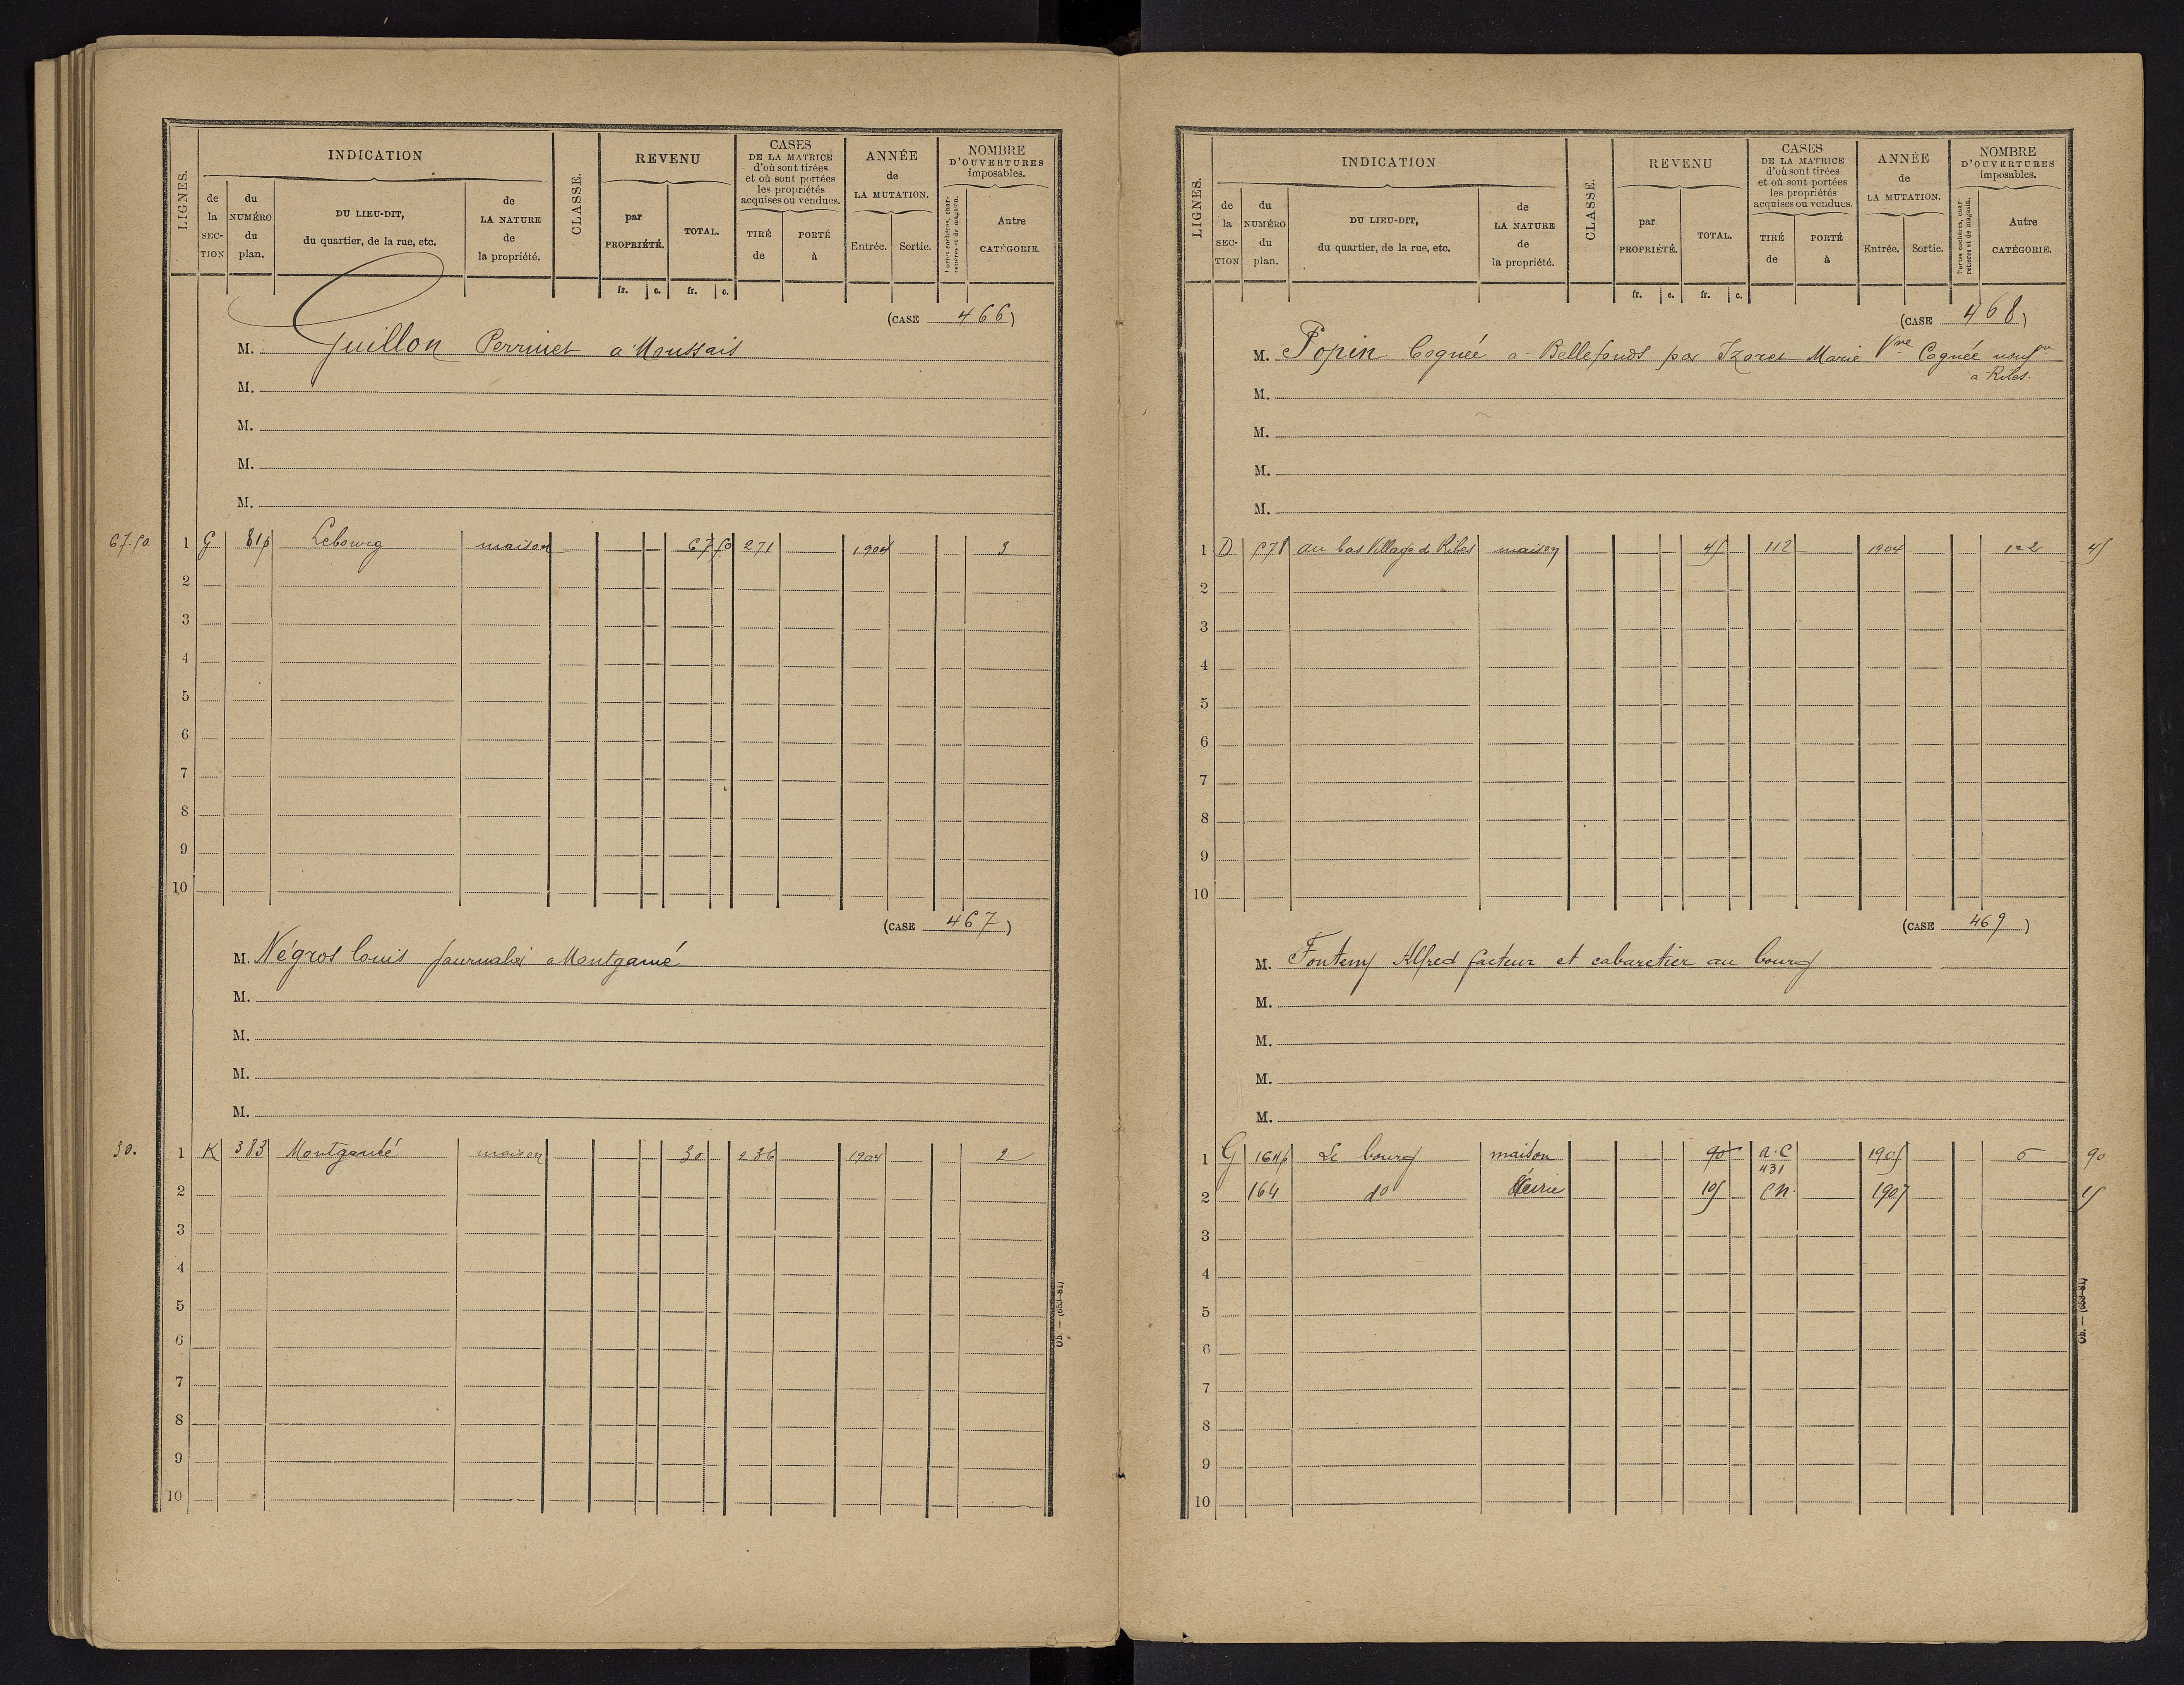 LIGNES.
INDICATION
de la SEC-TION
du NUMÉRO du plan.
DU LIEU-DIT, du quartier, de la rue, etc.
de LA NATURE de la propriété.
CLASSE.
REVENU
par PROPRIÉTÉ.
TOTAL.
fr. c. fr. c.
CASES DE LA MATRICE d'où sont tirées et où sont portées les propriétés acquises ou vendues.
TIRÉ de
PORTÉ à
ANNÉE de LA MUTATION.
Entrée. Sortie.
NOMBRE D'OUVERTURES imposables.
Portes cochères, charretières et de magasin.
Autre CATÉGORIE.
(CASE 466)
M. Guillon Perrinet a Moussais
M.
M.
M.
M.
67.50 1 G 81p Lebourg maison 67 50 271 1904 3
2
3
4
5
6
7
8
9
10
(CASE 467)
M. Négros Louis journalier a Montgamé
M.
M.
M.
M.
30. 1 K 383 Montgamé maison 30 236 1904 2
2
3
4
5
6
7
8
9
10
Ob. — (683-81)
LIGNES.
INDICATION
de la SEC-TION
du NUMÉRO du plan.
DU LIEU-DIT, du quartier, de la rue, etc.
de LA NATURE de la propriété.
CLASSE.
REVENU
par PROPRIÉTÉ.
TOTAL.
fr. c. fr. c.
CASES DE LA MATRICE d'où sont tirées et où sont portées les propriétés acquises ou vendues.
TIRÉ de
PORTÉ à
ANNÉE de LA MUTATION.
Entrée. Sortie.
NOMBRE D'OUVERTURES imposables.
Portes cochères, charretières et de magasin.
Autre CATÉGORIE.
(CASE 468)
M. Popin Cognée a Bellefonds par Izoret Marie Vve Cognée
a Ribes.
M.
M.
M.
M.
1 D 578 au bas Village de Ribes maison 45 112 1904 45
2
3
4
5
6
7
8
9
10
(CASE 469)
M. Fonteny Alfred facteur et cabaretier au bourg
M.
M.
M.
M.
1 G 164p Le bourg maison 90 a.C 1905 6 90
431
2 164 do 105 C.N. 1907 15
3
4
5
6
7
8
9
10
Ob. — (683-81)